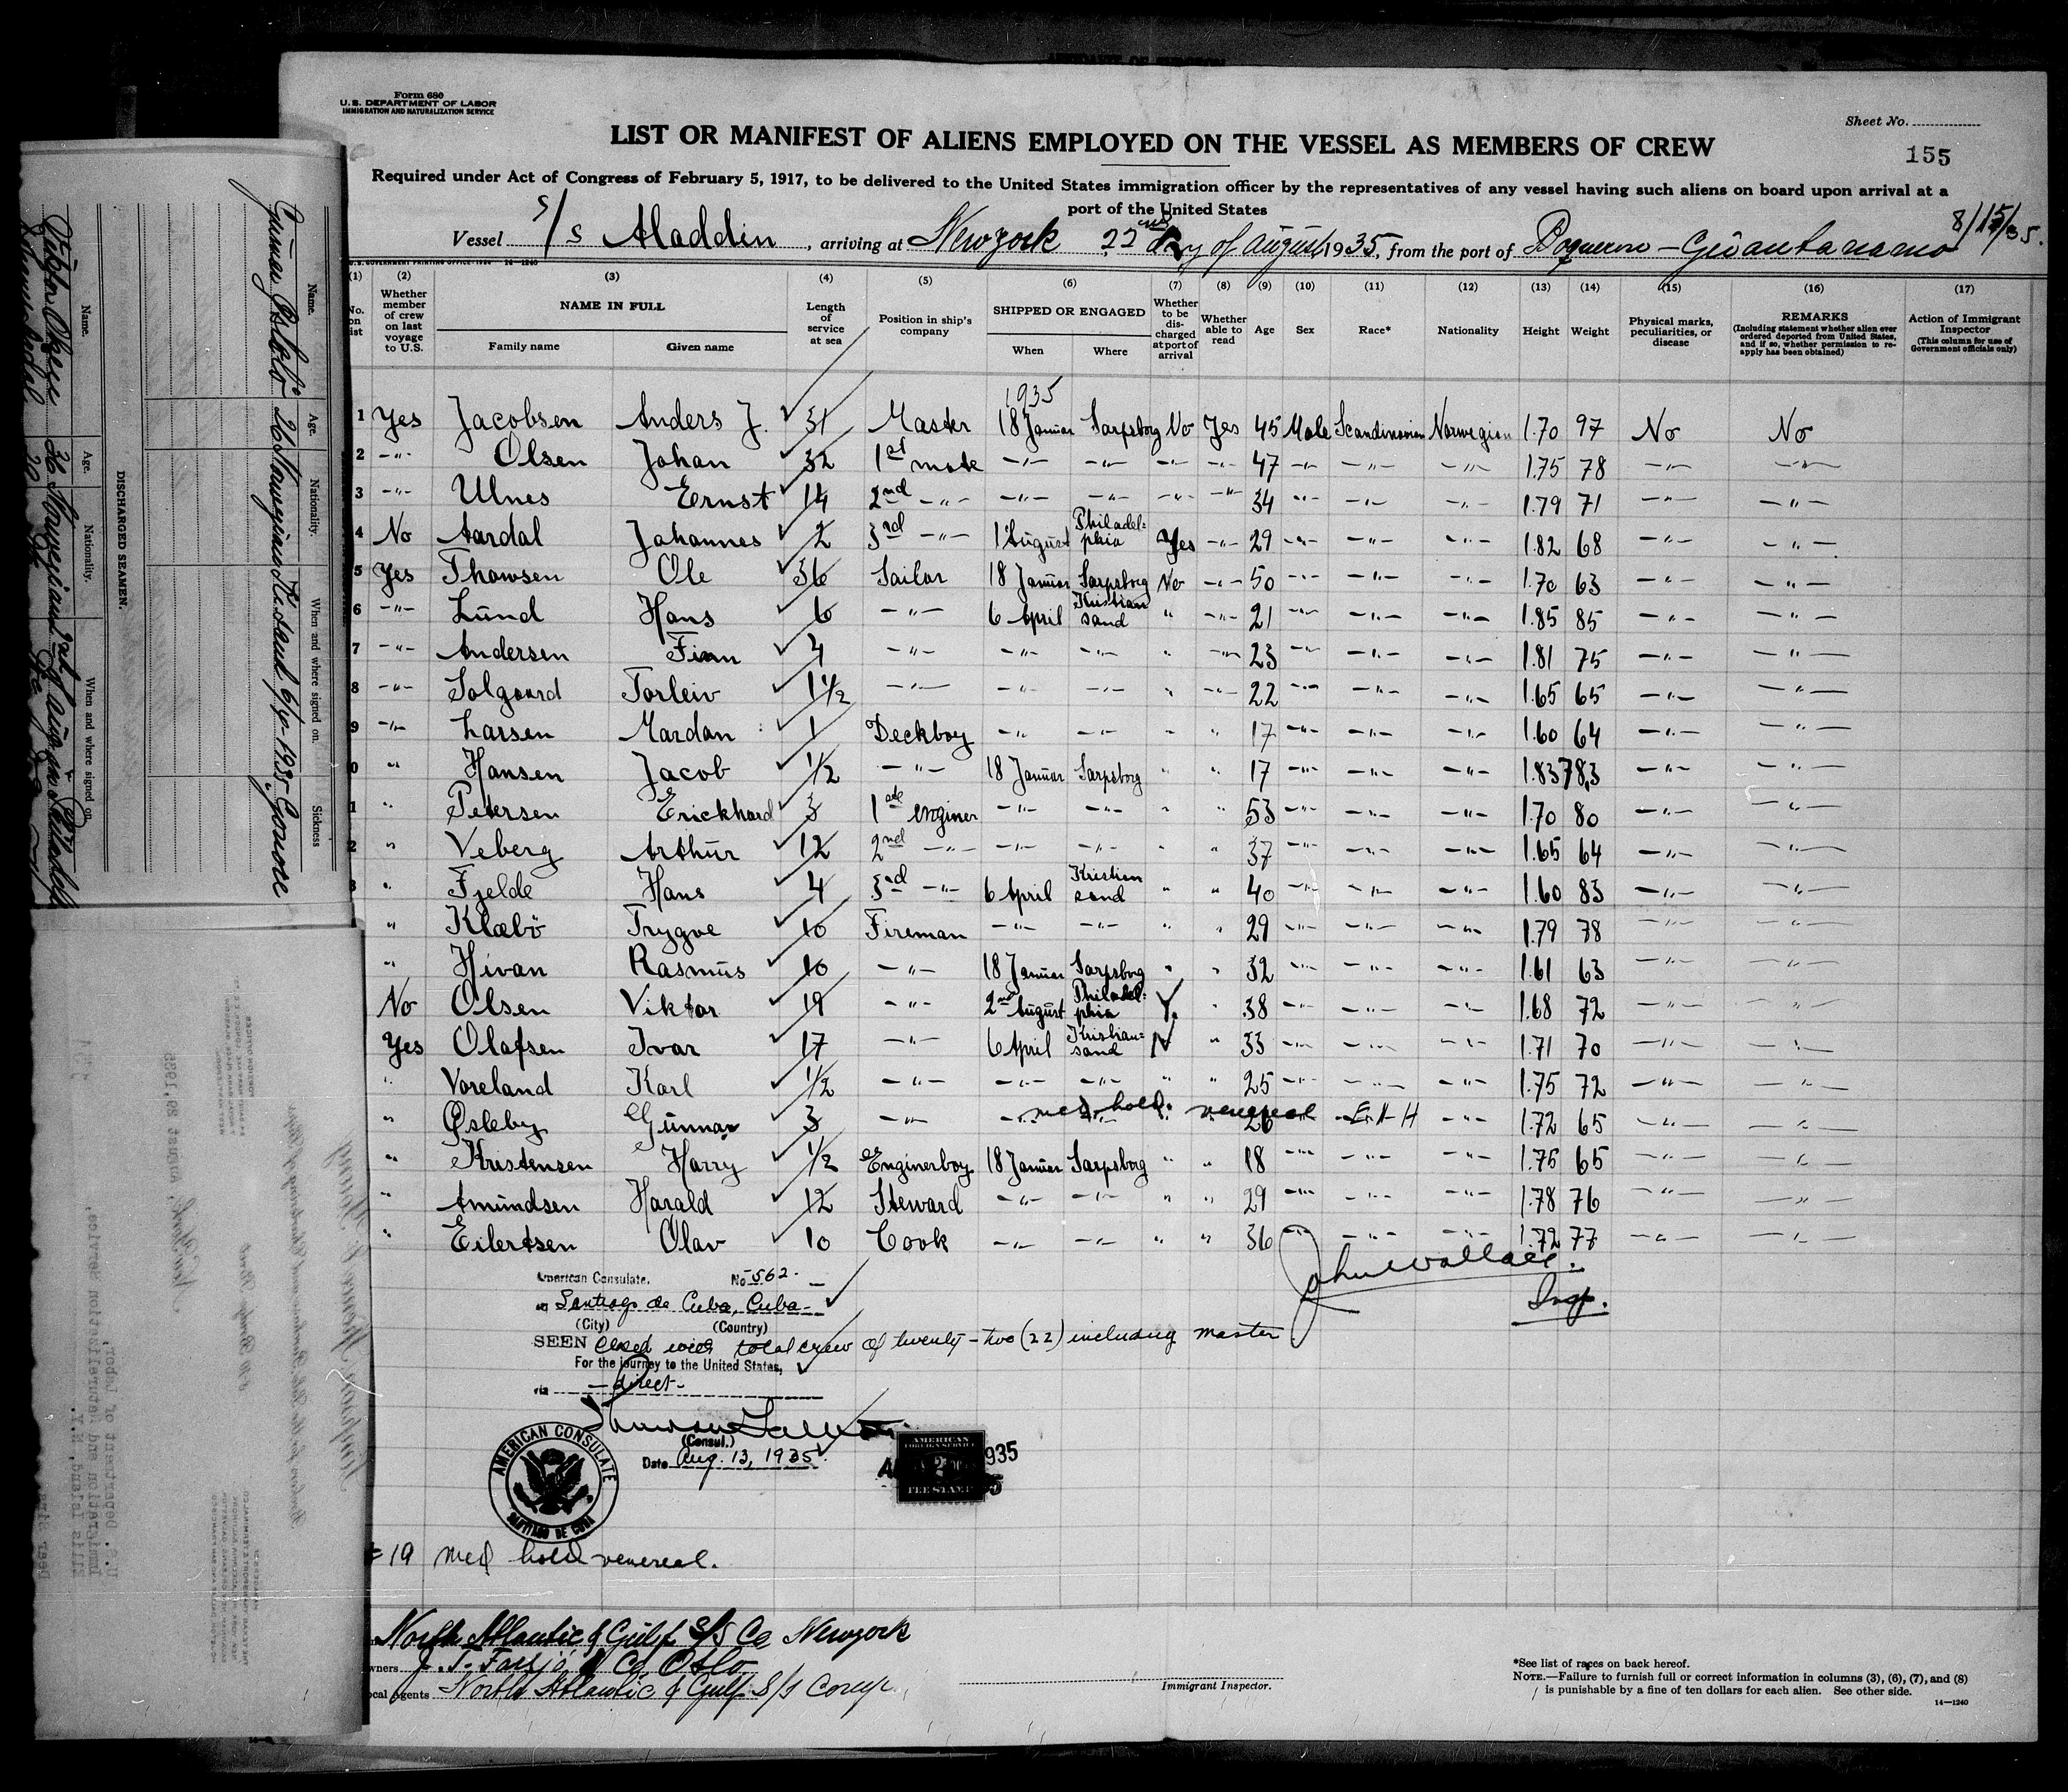 Form 680
U.S. DEPARTMENT OF LABOR
IMMIGRATION AND NATURALIZATION SERVICE
Sheet No.
LIST OR MANIFEST OF ALIENS EMPLOYED ON THE VESSEL AS MEMBERS OF CREW
155
Required under Act of Congress of February 5, 1917, to be delivered to the United States immigration officer by the representatives of any vessel having such aliens on board upon arrival at a
port of the United States
8/15/35.
Vessel S/S Aladdin, arriving at Newyork 22nd day of August 1935, from the port of Boqueron - Guantanamo
U.S. GOVERNMENT PRINTING OFFICE 14-1240
(1) (2) (3) (4) (5) (6) (7) (8) (9) (10) (11) (12) (13) (14) (15) (16) (17)
No. on list
Whether member of crew on last voyage to U.S.
NAME IN FULL
Family name
Given name
Length of service at sea
Position in ship's company
SHIPPED OR ENGAGED
When
Where
Whether to be discharged at port of arrival
Whether able to read
Age
Sex
Race*
Nationality
Height
Weight
Physical marks, peculiarities, or disease
REMARKS
(Including statement whether alien ever ordered deported from United States, and if so, whether permission to reapply has been obtained)
Action of Immigrant Inspector
(This column for use of Government officials only)
1935
1 Yes Jacobsen Anders J. 31 Master 18 Januar Sarpsborg No Yes 45 Male Scandinavian Norwegian 1.70 97 No No
2 -"- Olsen Johan 32 1st mate -"- -"- -"- -"- 47 -"- -"- -"- 1.75 78 -"- -"-
3 -"- Ulnes Ernst 14 2nd -"- -"- -"- -"- -"- 34 -"- -"- -"- 1.79 71 -"- -"-
4 No Aardal Johannes 2 3rd -"- 1 August Philadelphia Yes -"- 29 -"- -"- -"- 1.82 68 -"- -"-
5 Yes Thowsen Ole 36 Sailor 18 Januar Sarpsborg No -"- 50 -"- -"- -"- 1.70 63 -"- -"-
6 -"- Lund Hans 6 -"- 6 April Kristiansand " -"- 21 -"- -"- -"- 1.85 85 -"- -"-
7 -"- Andersen Finn 4 -"- -"- -"- " -"- 23 -"- -"- -"- 1.81 75 -"- -"-
8 -"- Solgaard Torleiv 1 1/2 -"- -"- -"- " -"- 22 -"- -"- -"- 1.65 65 -"- -"-
9 -"- Larsen Mardon 1 Deckboy -"- -"- " " 17 -"- -"- -"- 1.60 64 -"- -"-
0 " Hansen Jacob 1/2 -"- 18 Januar Sarpsborg " " 17 -"- -"- -"- 1.83 78,3 -"- -"-
1 " Petersen Erickhard 3 1ste enginer -"- -"- " " 53 -"- -"- -"- 1.70 80 -"- -"-
2 " Veberg Arthur 12 2nd -"- -"- -"- " " 37 -"- -"- -"- 1.65 64 -"- -"-
3 " Fjelde Hans 4 3rd -"- 6 April Kristiansand " " 40 -"- -"- -"- 1.60 83 -"- -"-
" Klæbö Trygve 10 Fireman -"- -"- " " 29 -"- -"- -"- 1.79 78 -"- -"-
" Hivan Rasmus 10 -"- 18 Januar Sarpsborg " " 32 -"- -"- -"- 1.61 63 -"- -"-
No Olsen Viktor 19 -"- 2nd August Philadelphia Y. " 38 -"- -"- -"- 1.68 72 -"- -"-
Yes Olafsen Ivar 17 -"- 6 April Kristiansand N " 33 -"- -"- -"- 1.71 70 -"- -"-
" Voreland Karl 1/2 -"- -"- -"- " " 25 -"- -"- -"- 1.75 72 -"- -"-
" Øsleby Gunnar 3 -"- med. hold. venereal 26 1.72 65 -"- -"-
" Kristensen Harry 1/2 Enginerboy 18 Januar Sarpsborg " " 18 -"- -"- -"- 1.75 65 -"- -"-
" Amundsen Harald 12 Steward -"- -"- " " 29 -"- -"- -"- 1.78 76 -"- -"-
" Eilertsen Olav 10 Cook -"- -"- " " 36 -"- -"- -"- 1.72 77 -"- -"-
John Wallace.
Insp.
American Consulate. No 562.
at Santiago de Cuba, Cuba
(City) (Country)
SEEN Closed with total crew of twenty-two (22) including master
For the journey to the United States,
via - direct -
(Consul.)
Date Aug. 13, 1935.
AMERICAN CONSULATE
SANTIAGO DE CUBA
AMERICAN FOREIGN SERVICE
FEE STAMP
935
#19 Med hold venereal.
North Atlantic & Gulf S/S Co Newyork
wners
Co. Oslo
ocal Agents North Atlantic & Gulf S/S Comp.
Immigrant Inspector.
*See list of races on back hereof.
NOTE.—Failure to furnish full or correct information in columns (3), (6), (7), and (8)
is punishable by a fine of ten dollars for each alien. See other side.
14—1240
DISCHARGED SEAMEN.
Name. Age. Nationality. When and where signed on.
Viktor Olsen 36 Norwegian
Name. Age. Nationality. When and where signed on. Sickness
Gunnar Osleby 26 Norwegian Kr.sand 6/4-1935
August 29, 1935
U.S. Department of Labor,
Immigration and Naturalization Service,
Ellis Island, N.Y.
Dear Sirs